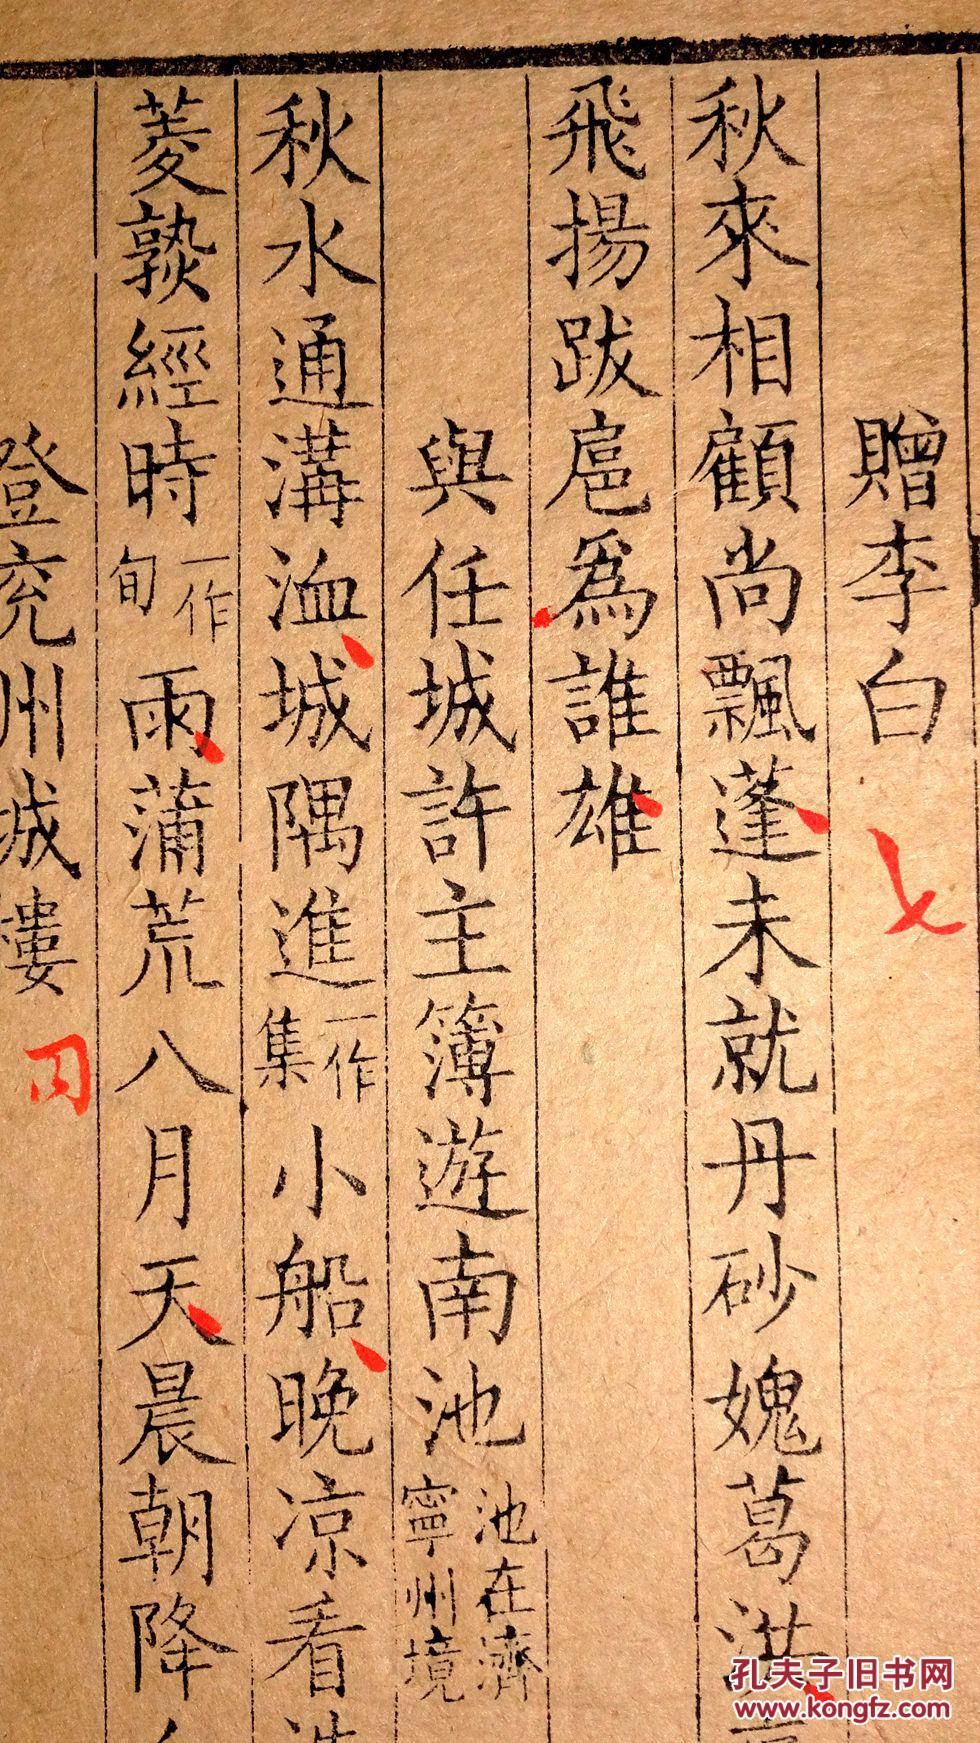 贈李白 七
秋來相顧尚飄蓬未就丹砂媿葛洪
飛揚跋扈爲誰雄
與任城許主簿遊南池池在濟寧州境
秋水通溝洫城隅進一作集小船晚涼看
菱孰經時一作旬雨蒲荒八月天晨朝降
登兖州城樓
孔夫子旧书网
www.kongfz.com